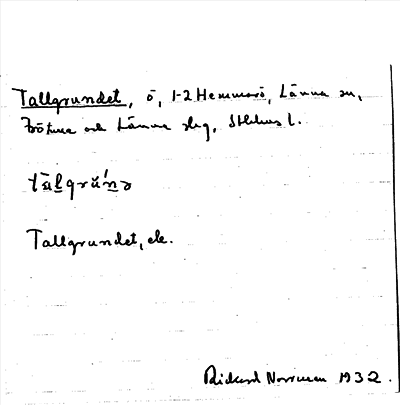 Tallgrundet, ö, 1-2 Hemmarö, Länna sn,
Frötuna och Länna skg, Sthlms l.
tàlgrú́nə
Tallgrundet, ek.
Rickard Norrman 1932.